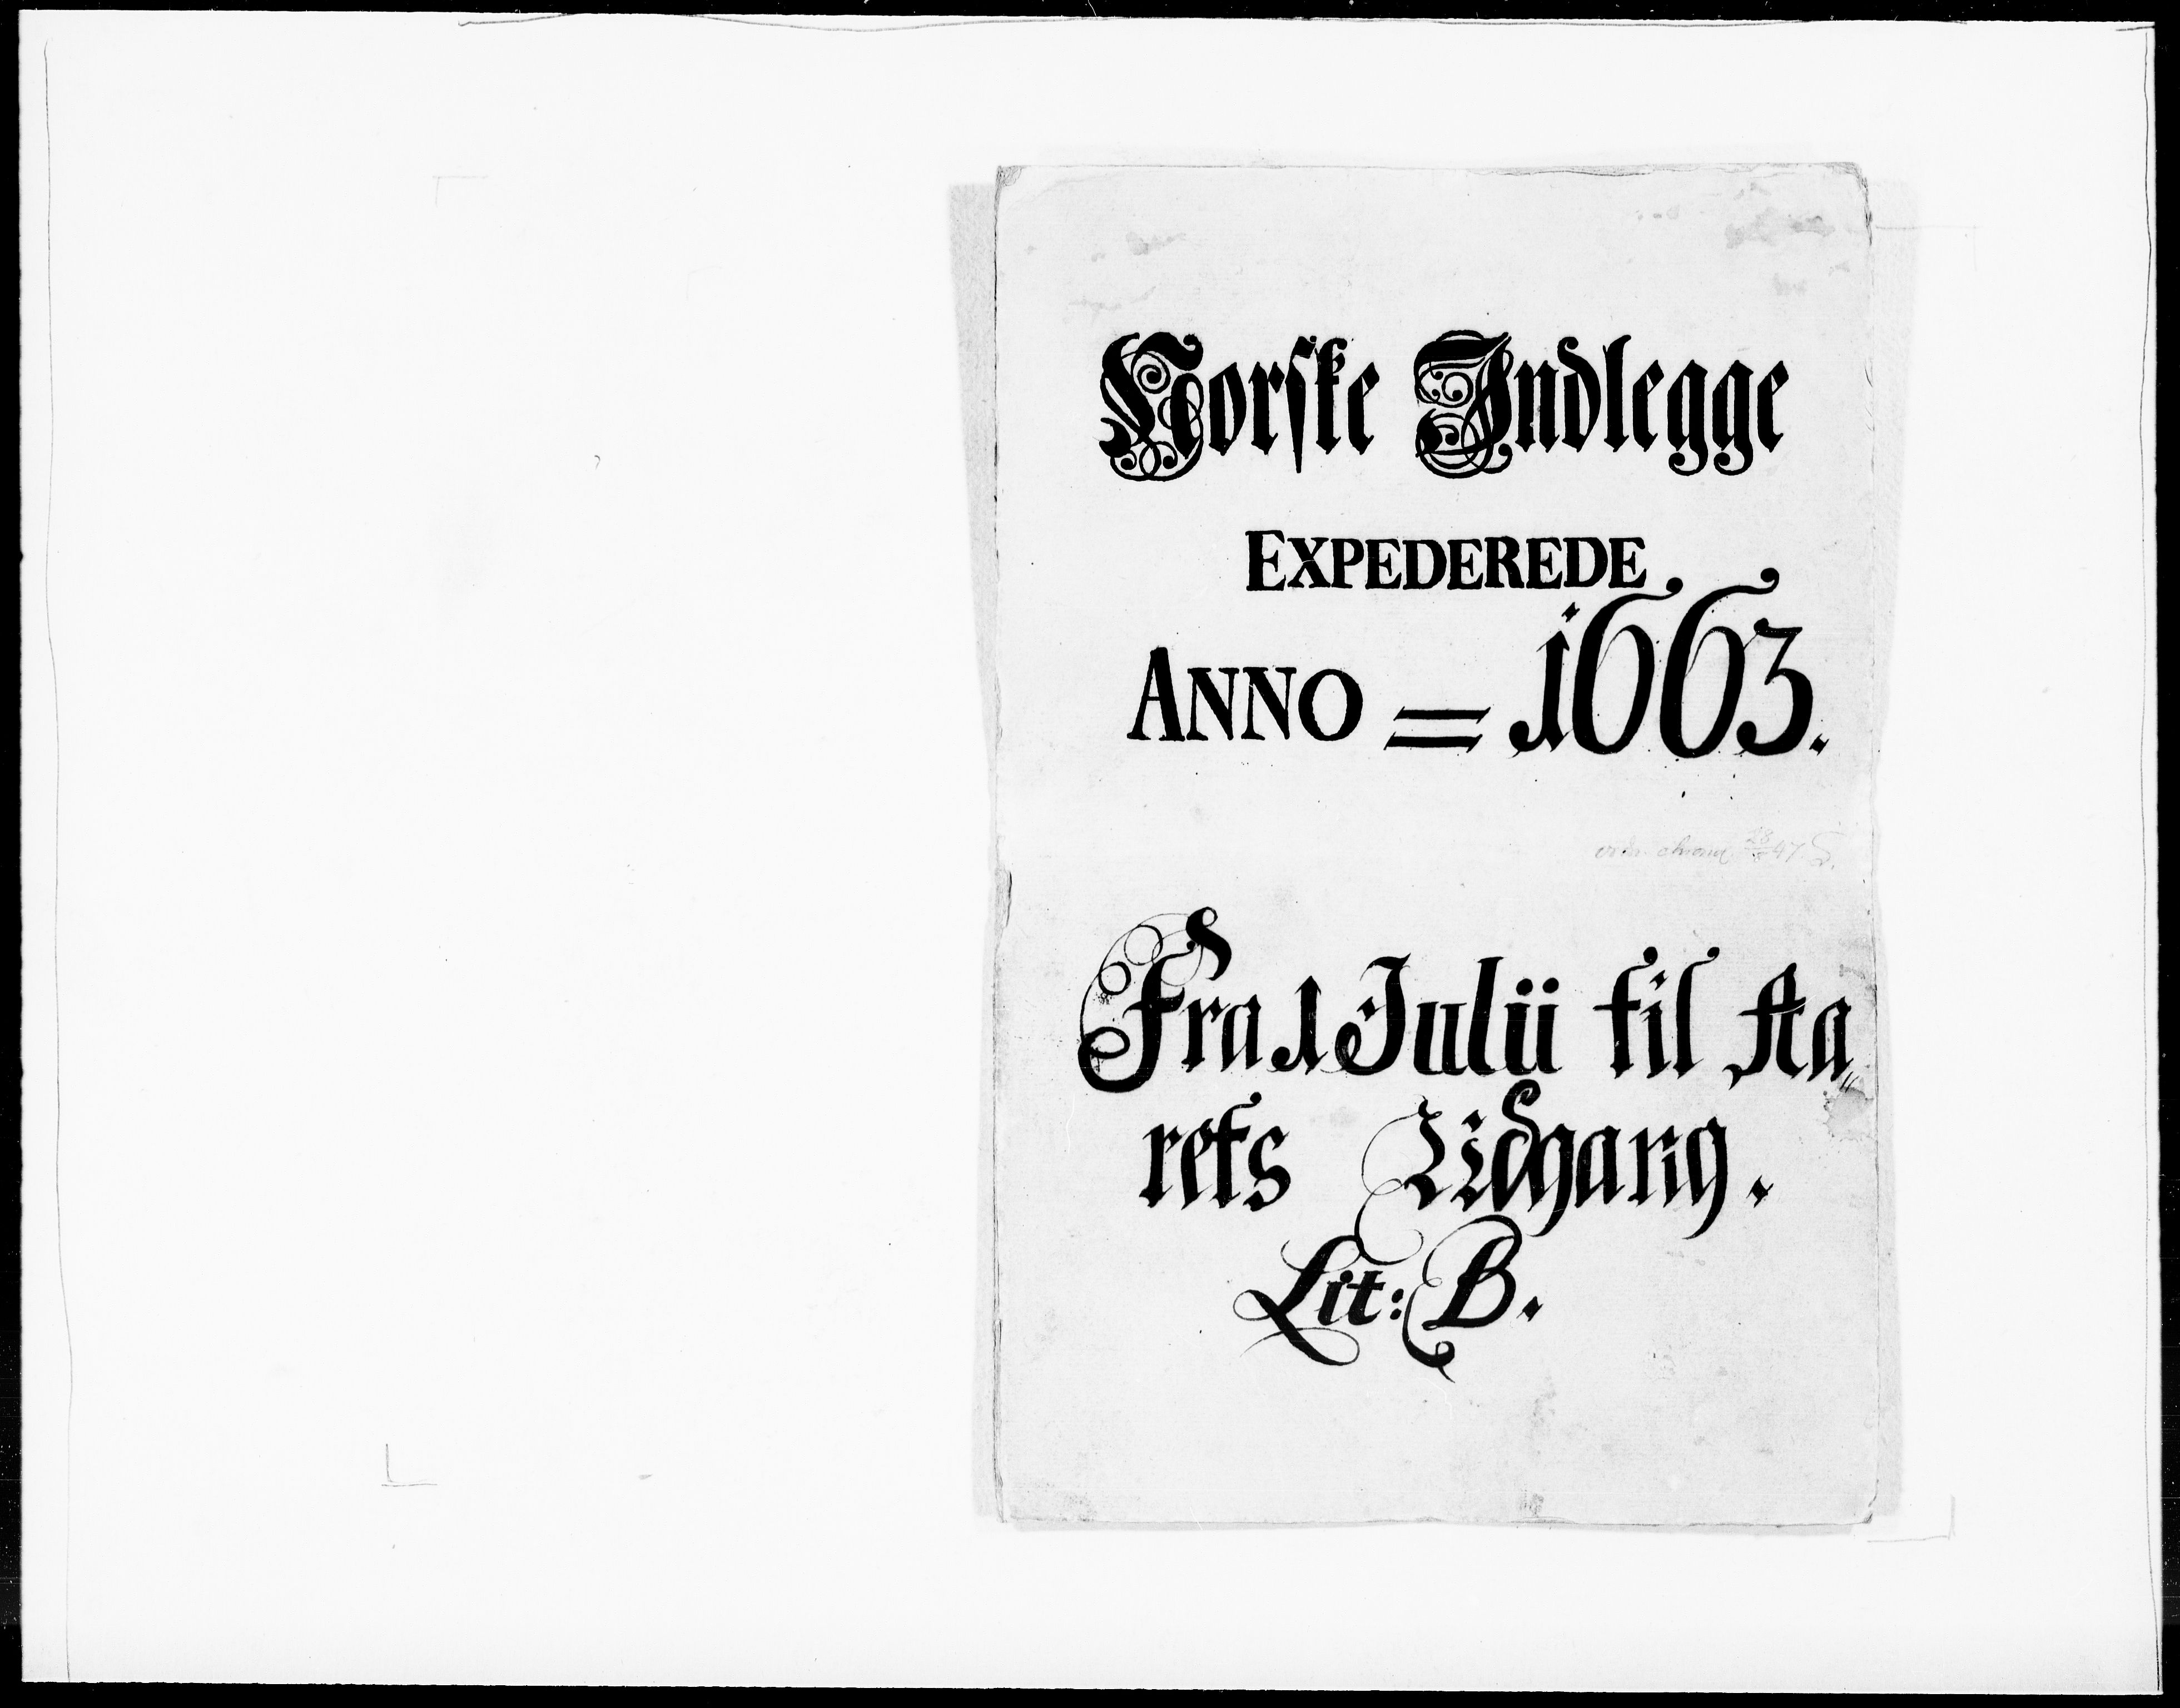 Norske Indlegge
EXPEDEREDE
ANNO = 1663.
Fra 1 Julii til Aa„
rets Udgang.
Lit: B.